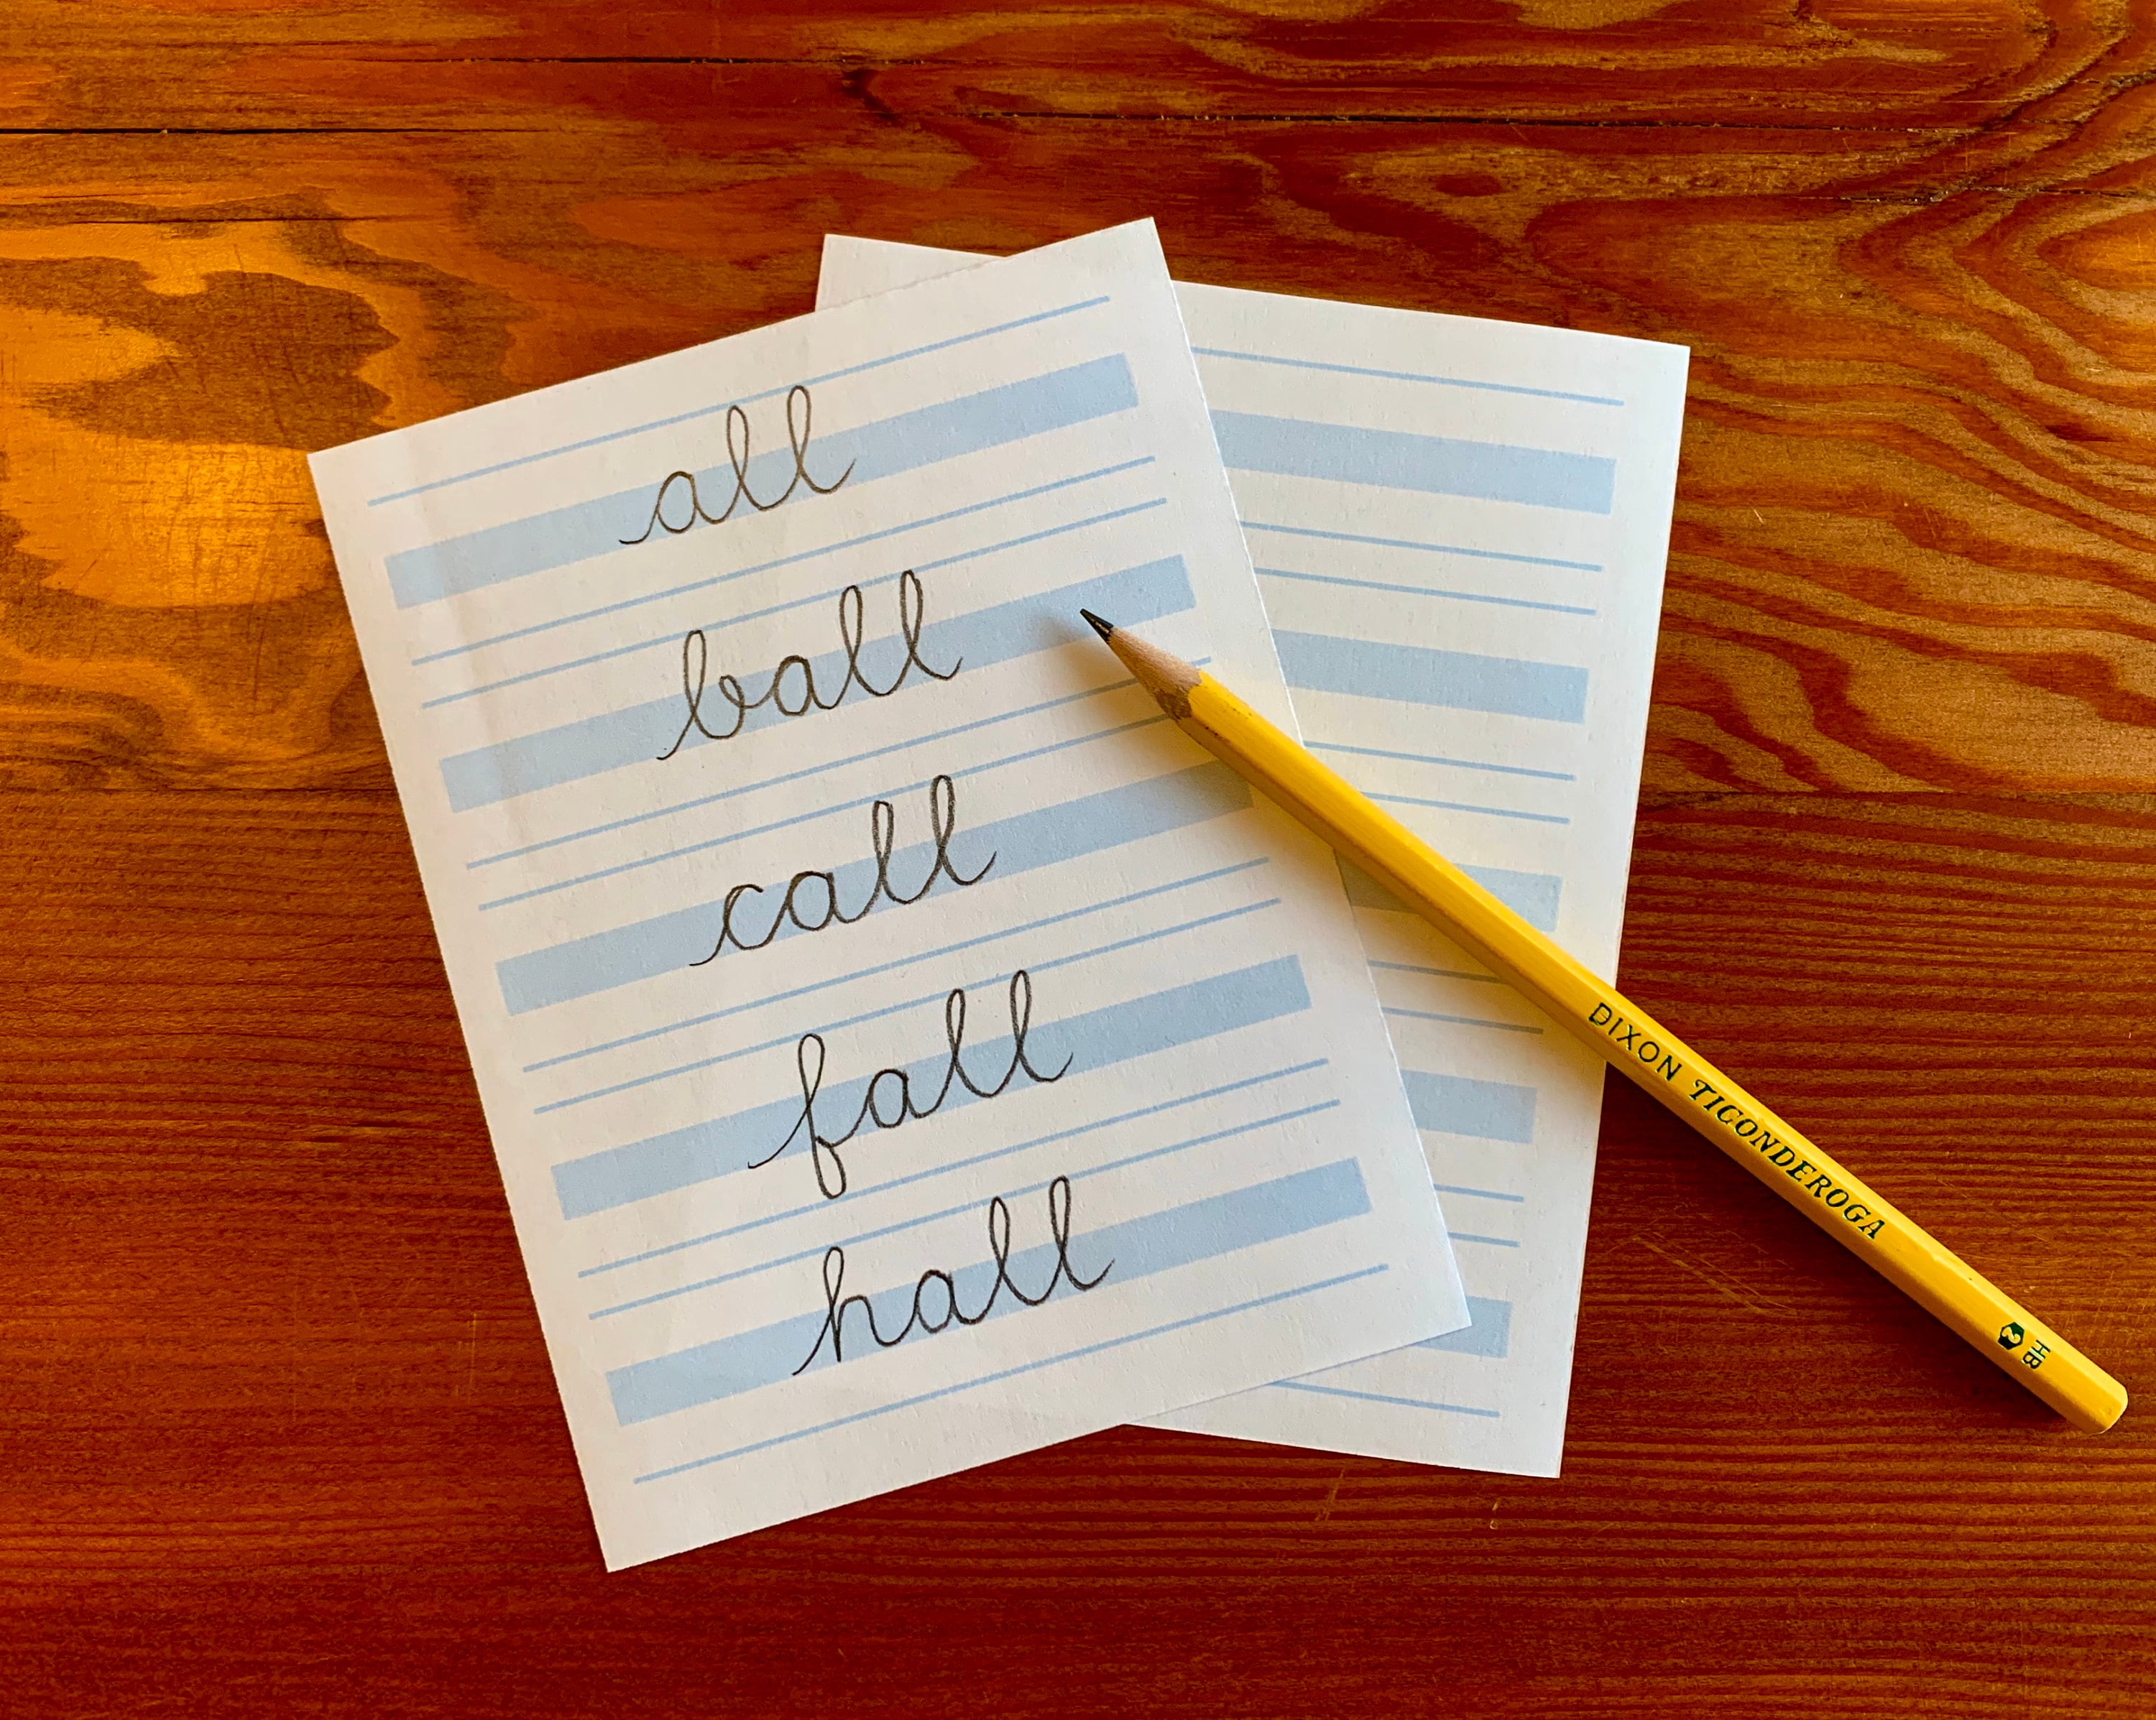 all
ball
call
fall
hall
DIXON TICONDEROGA
2 HB